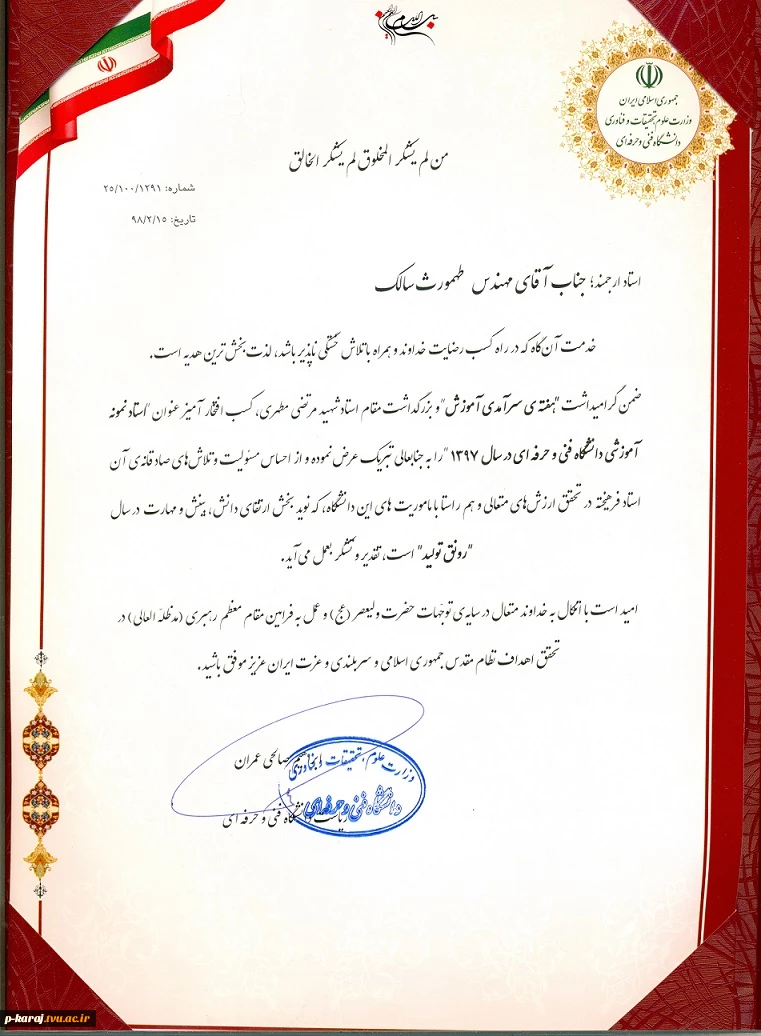 بسم الله الرحمن الرحیم
جمهوری اسلامی ایران
وزارت علوم، تحقیقات و فناوری
دانشگاه فنی و حرفه ای
من لم یشکر المخلوق لم یشکر الخالق
شماره: ۲۵/۱۰۰/۱۲۹۱
تاریخ: ۹۸/۲/۱۵
استاد ارجمند؛ جناب آقای مهندس طهمورث سالک
خدمت آن گاه که در راه کسب رضایت خداوند و همراه با تلاش خستگی ناپذیر باشد، لذت بخش ترین هدیه است.
ضمن گرامیداشت "هفته ی سرآمدی آموزش" و بزرگداشت مقام استاد شهید مرتضی مطهری، کسب افتخار آمیز عنوان "استاد نمونه
آموزشی دانشگاه فنی و حرفه ای در سال ۱۳۹۷" را به جنابعالی تبریک عرض نموده و از احساس مسئولیت و تلاش های صادقانه ی آن
استاد فرهیخته در تحقق ارزش های متعالی و هم راستا با ماموریت های این دانشگاه، که نوید بخش ارتقای دانش، بینش و مهارت در سال
"رونق تولید" است، تقدیر و تشکر بعمل می آید.
امید است با اتکال به خداوند متعال در سایه ی توجّهات حضرت ولیعصر (عج) و عمل به فرامین مقام معظم رهبری (مدظلّه العالی) در
تحقق اهداف نظام مقدس جمهوری اسلامی و سربلندی و عزت ایران عزیز موفق باشید.
ابراهیم صالحی عمران
ریاست دانشگاه فنی و حرفه ای
وزارت علوم، تحقیقات و فناوری
دانشگاه فنی و حرفه ای
p-karaj.tvu.ac.ir